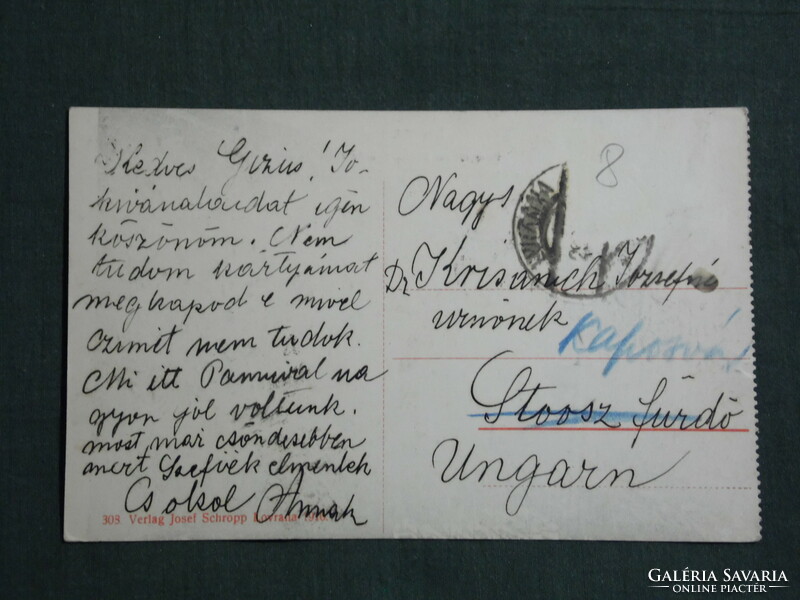 Kedves Gizus! Jó-
kivánataidat igen
köszönöm. Nem
tudom kártyámat
megkapod e mivel
czimét nem tudok.
Mi itt Pannival na
gyon jól voltunk.
most már csöndesebben
mert Szefiék elmentek
Csokol Annak
303. Verlag Josef Schropp Lovrana 1910.
8
Nagys
Dr Krisanich Jozsefné
urnőnek
Kaposvár
Stoosz fürdő
Ungarn
GALÉRIA SAVARIA
ONLINE PIACTÉR